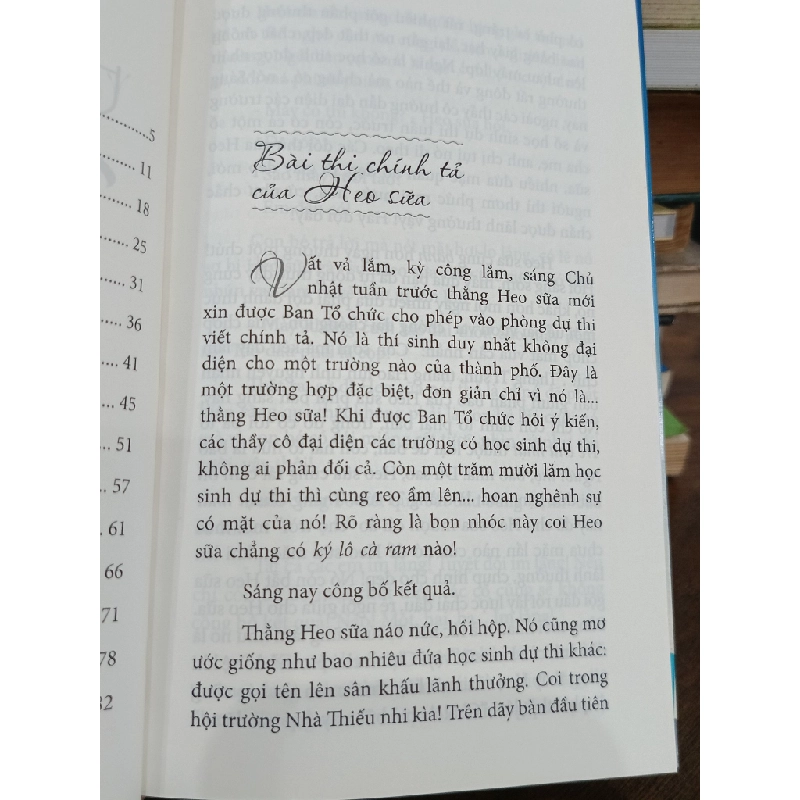 5
11
18
25
31
36
41
45
51
57
61
66
71
78
Bài thi chính tả
của Heo sữa
Vất vả lắm, kỳ công lắm, sáng Chủ
nhật tuần trước thằng Heo sữa mới
xin được Ban Tổ chức cho phép vào phòng dự thi
viết chính tả. Nó là thí sinh duy nhất không đại
diện cho một trường nào của thành phố. Đây là
một trường hợp đặc biệt, đơn giản chỉ vì nó là...
thằng Heo sữa! Khi được Ban Tổ chức hỏi ý kiến,
các thầy cô đại diện các trường có học sinh dự thi,
không ai phản đối cả. Còn một trăm mười lăm học
sinh dự thi thì cùng reo ầm lên... hoan nghênh sự
có mặt của nó! Rõ ràng là bọn nhóc này coi Heo
sữa chẳng có ký lô cà ram nào!
Sáng nay công bố kết quả.
Thằng Heo sữa náo nức, hồi hộp. Nó cũng mơ
ước giống như bao nhiêu đứa học sinh dự thi khác:
được gọi tên lên sân khấu lãnh thưởng. Coi trong
hội trường Nhà Thiếu nhi kìa! Trên dãy bàn đầu tiên